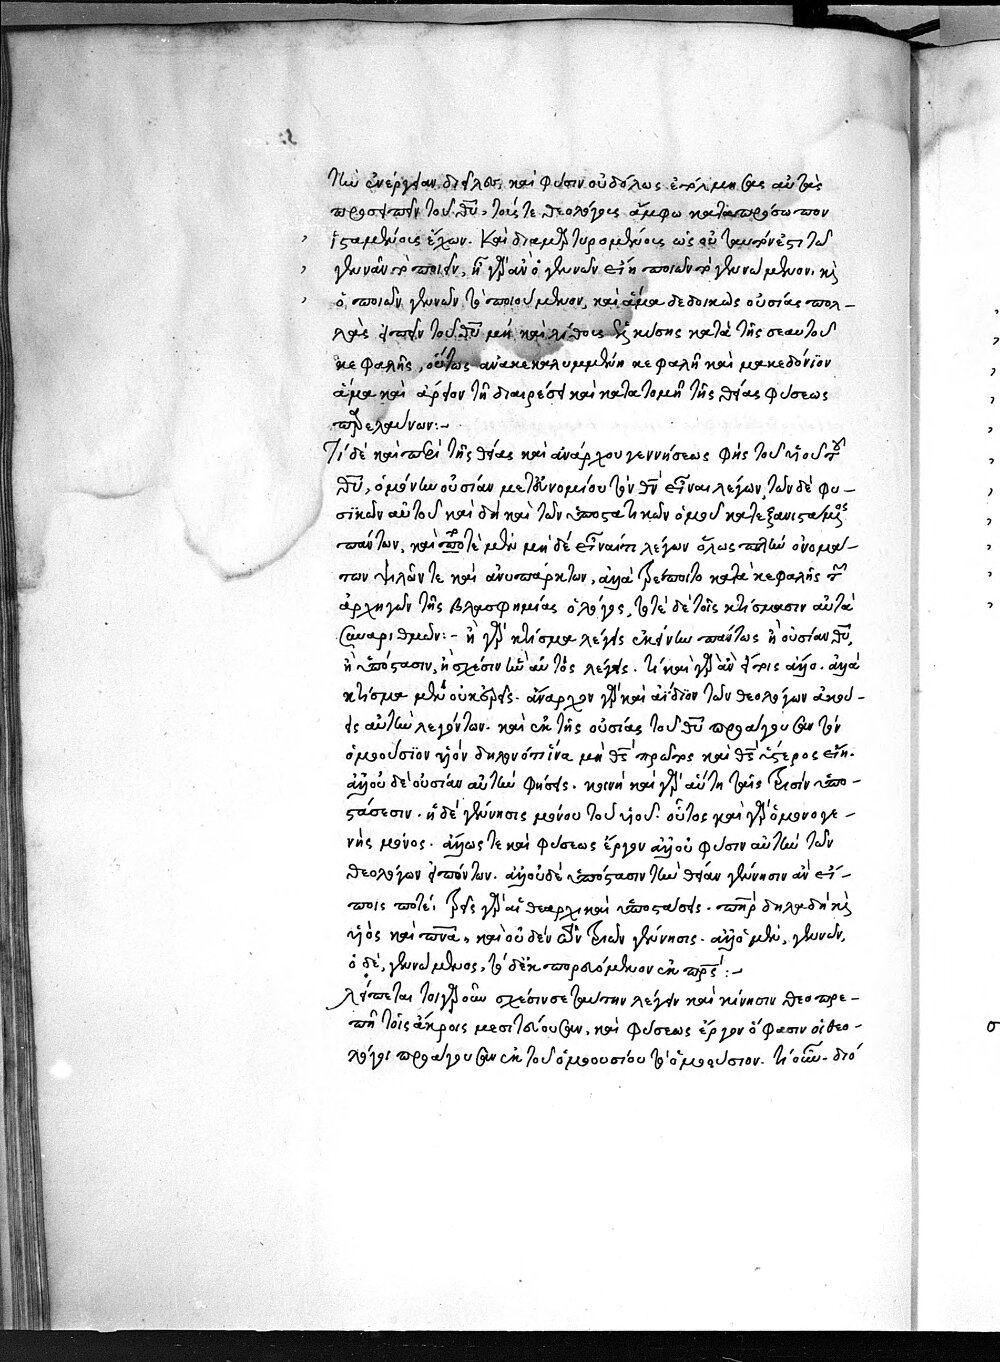 τὴν ἐνέργειαν διελεῖν, καὶ φύσιν οὐδόλως ἐτόλμησας αὐτὰς
προσειπεῖν τοῦ θῦ, τούς τε θεολόγους ἄμφω κατὰ πρόσωπον
ἱσταμένους ἔχων. Καὶ διαμαρτυρομένους ὡς οὐ ταυτόν ἐστι τῷ
γεννᾶν τὸ ποιεῖν, ἢ γὰρ ἂν ὁ γεννῶν εἴη ποιῶν τὸ γεννώμενον, κὶ
ὁ ποιῶν, γεννῶν τὸ ποιούμενον, καὶ ἅμα δεδοικὼς οὐσίας πολ-
λὰς εἰπεῖν τοῦ θῦ μὴ καὶ λίθους κινήσῃς κατὰ τῆς σεαυτοῦ
κεφαλῆς, οὕτως ἀνακεκαλυμμένῃ κεφαλῇ καὶ μακεδόνϊον
ἅμα καὶ ἄρειον τῇ διαιρέσει καὶ κατατομῇ τῆς θείας φύσεως
παρελαύνων:-
Τί δὲ καὶ περὶ τῆς θείας καὶ ἀνάρχου γεννήσεως φὴς τοῦ υἱοῦ τοῦ
θῦ, ὁ μόνην οὐσίαν μετ' εὐνομίου τὸν θν εἶναι λέγων, τῶν δὲ φυ-
σϊκῶν αὐτοῦ καὶ δὴ καὶ τῶν ὑποστατικῶν ὁμοῦ κατεξανιστάμενος
πάντων, καὶ ποτὲ μὲν μηδὲ εἶναί τι λέγων ὅλως πλὴν ὀνομά-
των ψιλῶν τε καὶ ἀνυπάρκτων, ἀλλὰ τρέποιτο κατὰ κεφαλῆς τῶν
ἀρχηγῶν τῆς βλασφημίας ὁ λόγος, ποτὲ δὲ τοῖς κτίσμασιν αὐτὰ
συναριθμῶν:- ἢ γὰρ κτίσμα λέγεις ἐκείνην πάντως ἢ οὐσίαν θῦ,
ἢ ὑπόστασιν, ἢ σχέσιν ὡς αὐτὸς λέγεις. τί καὶ γὰρ ἂν εἴποις ἄλλο. ἀλλὰ
κτίσμα μὲν οὐκ ἐρεῖς. ἄναρχον γὰρ καὶ ἀΐδϊον τῶν θεολόγων ἀκού-
εις αὐτὴν λεγόντων. καὶ ἐκ τῆς οὐσίας τοῦ θῦ προάγουσαν τὸν
ὁμοούσϊον υἱὸν δηλονότι ἵνα μὴ θς πρῶτος καὶ θς ὕστερος εἴη.
ἀλλ' οὐδὲ οὐσίαν αὐτὴν φήσεις. κοινὴ καὶ γὰρ αὕτη ταῖς τρισὶν ὑπο-
στάσεσιν. ἡ δὲ γέννησις μόνου τοῦ υἱοῦ. οὗτος καὶ γὰρ ὁ μονογε-
νὴς μόνος. ἄλλως τε καὶ φύσεως ἔργον ἀλλ' οὐ φύσιν αὐτὴν τῶν
θεολόγων εἰπόντων. ἀλλ' οὐδὲ ὑπόστασιν τὴν θείαν γέννησιν ἂν εἴ-
ποις ποτέ. τρεῖς γὰρ αἱ θεαρχικαὶ ὑποστάσεις. πηρ δηλαδὴ κὶ
υἱὸς καὶ πνα, καὶ οὐδὲν τῶν τριῶν γέννησις. ἀλλ' ὁ μὲν, γεννῶν,
ὁ δὲ, γεννώμενος, τὸ δ' ἐκπορευόμενον ἐκ πρς:-
Λείπεται τοιγαροῦν σχέσιν σε ταύτην λέγειν καὶ κίνησιν θεοπρε-
πῆ τοῖς ἄκροις μεσιτεύουσαν, καὶ φύσεως ἔργον ὅ φασιν οἱ θεο-
λόγοι προάγουσαν ἐκ τοῦ ὁμοουσίου τὸ ὁμοούσιον. τί οὖν. διό